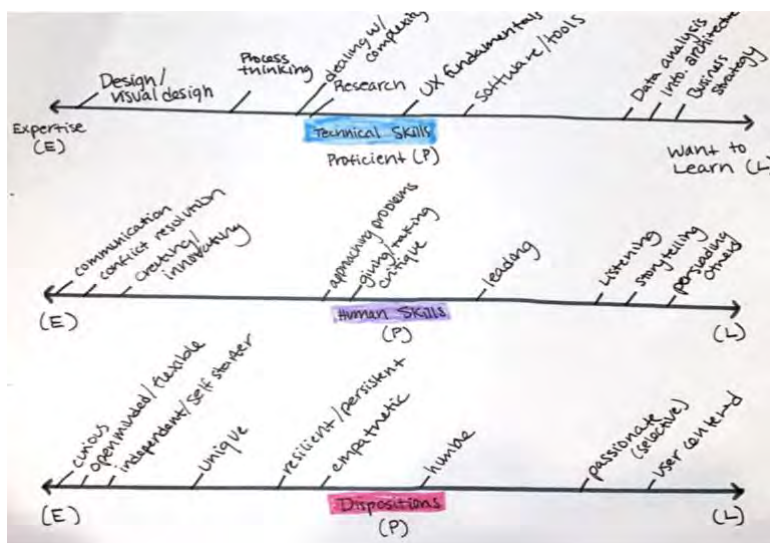 Design/
visual design
Process
thinking
dealing w/
complexity
Research
UX fundamentals
software/tools
Data analysis
Info. architecture
Business
strategy
Expertise
(E)
Technical Skills
Proficient (P)
Want to
Learn (L)
communication
conflict resolution
creating/
innovating
approaching problems
giving/taking
critique
leading
Listening
storytelling
persuading
others
(E)
Human Skills
(P)
(L)
curious
open minded/flexible
independent/self starter
unique
resilient/persistent
empathetic
humble
passionate
(selective)
user centered
(E)
Dispositions
(P)
(L)